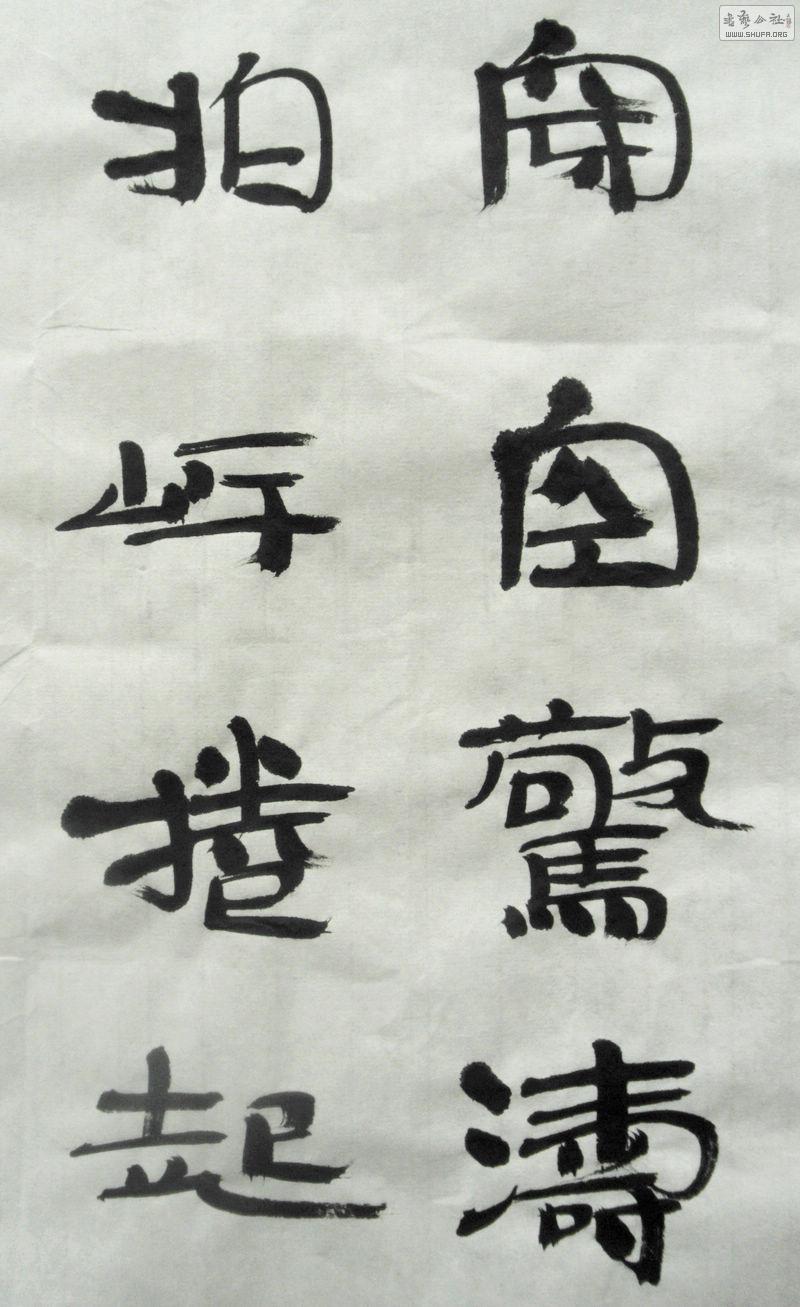 穿空驚濤
拍岸捲起
书艺公社
WWW.SHUFA.ORG